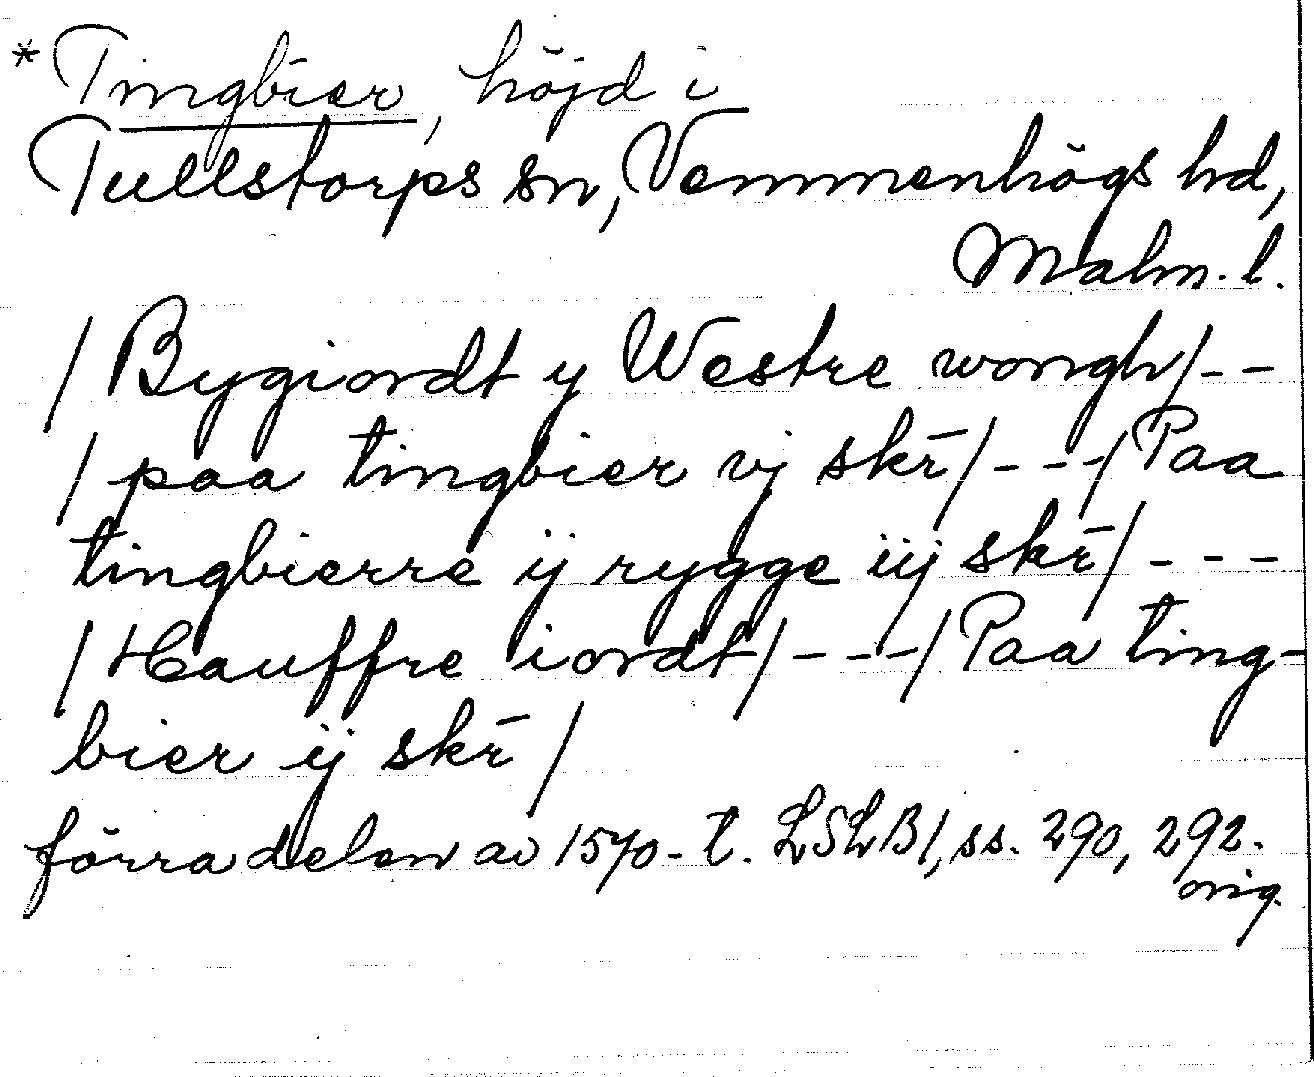 *Tingbier, höjd i
Tullstorps sn, Vemmenhögs hd,
Malm. l.
/Bygiordt y Westre wongh/--
/paa tingbier vj skr̄/---/Paa
tingbierre ij rygge iij skr̄/---
/Hauffre iordt/---/Paa ting-
bier ij skr̄/
förra delen av 1570-t. LSLB1, ss. 290, 292.
orig.